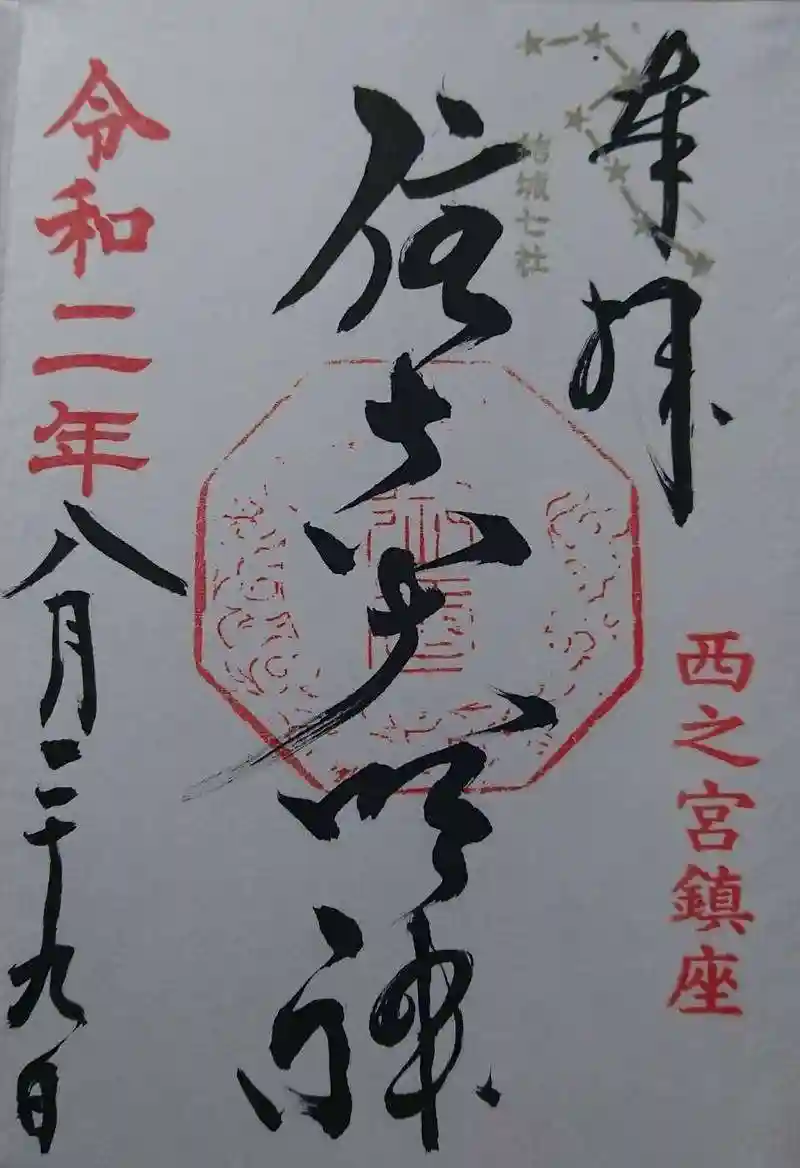 奉拝
結城七社
西之宮鎮座
住吉大明神
令和二年八月二十九日